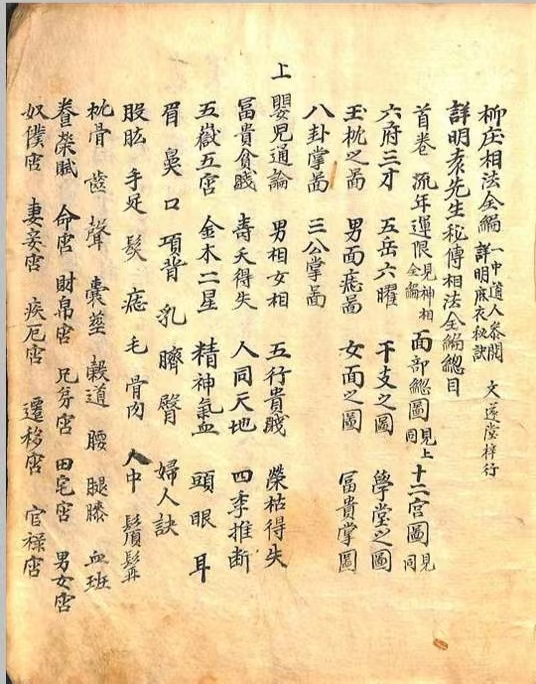 柳庄相法全編 一中道人參閱 詳明麻衣秘訣 文蓬堂梓行
詳明袁先生秘傳相法全編緫目
首卷 流年運限 見神相全編 面部緫圖 見上同 十二宫圖 見同
六府三才 五岳六曜 干支之圖 學堂之圖
玉枕之啚 男面痣啚 女面之圖 冨貴掌圖
八卦掌啚 三公掌啚
上 嬰児通論 男相女相 五行貴賎 榮枯得失
冨貴貧賎 壽夭得失 人同天地 四季推断
五嶽五宫 金木二星 精神氣血 頭 眼 耳
眉 鼻 口 項背 乳 臍 臀 婦人訣
股肱 手足 髮 痣 毛 骨肉 人中 鬚髯
枕骨 齒 聲 囊莖 穀道 腰 腿膝 血班
養榮賦 命宫 財帛宫 兄弟宫 田宅宫 男女宫
奴僕宫 妻妾宫 疾厄宫 遷移宫 官祿宫